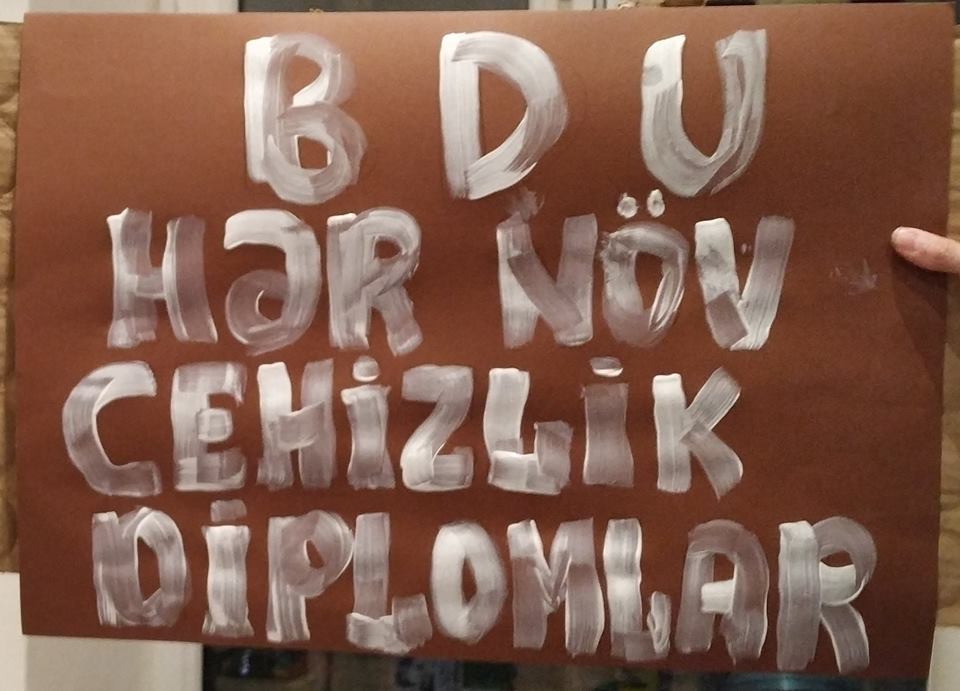 B D U
HƏR NÖV
CEHİZLİK
DİPLOMLAR